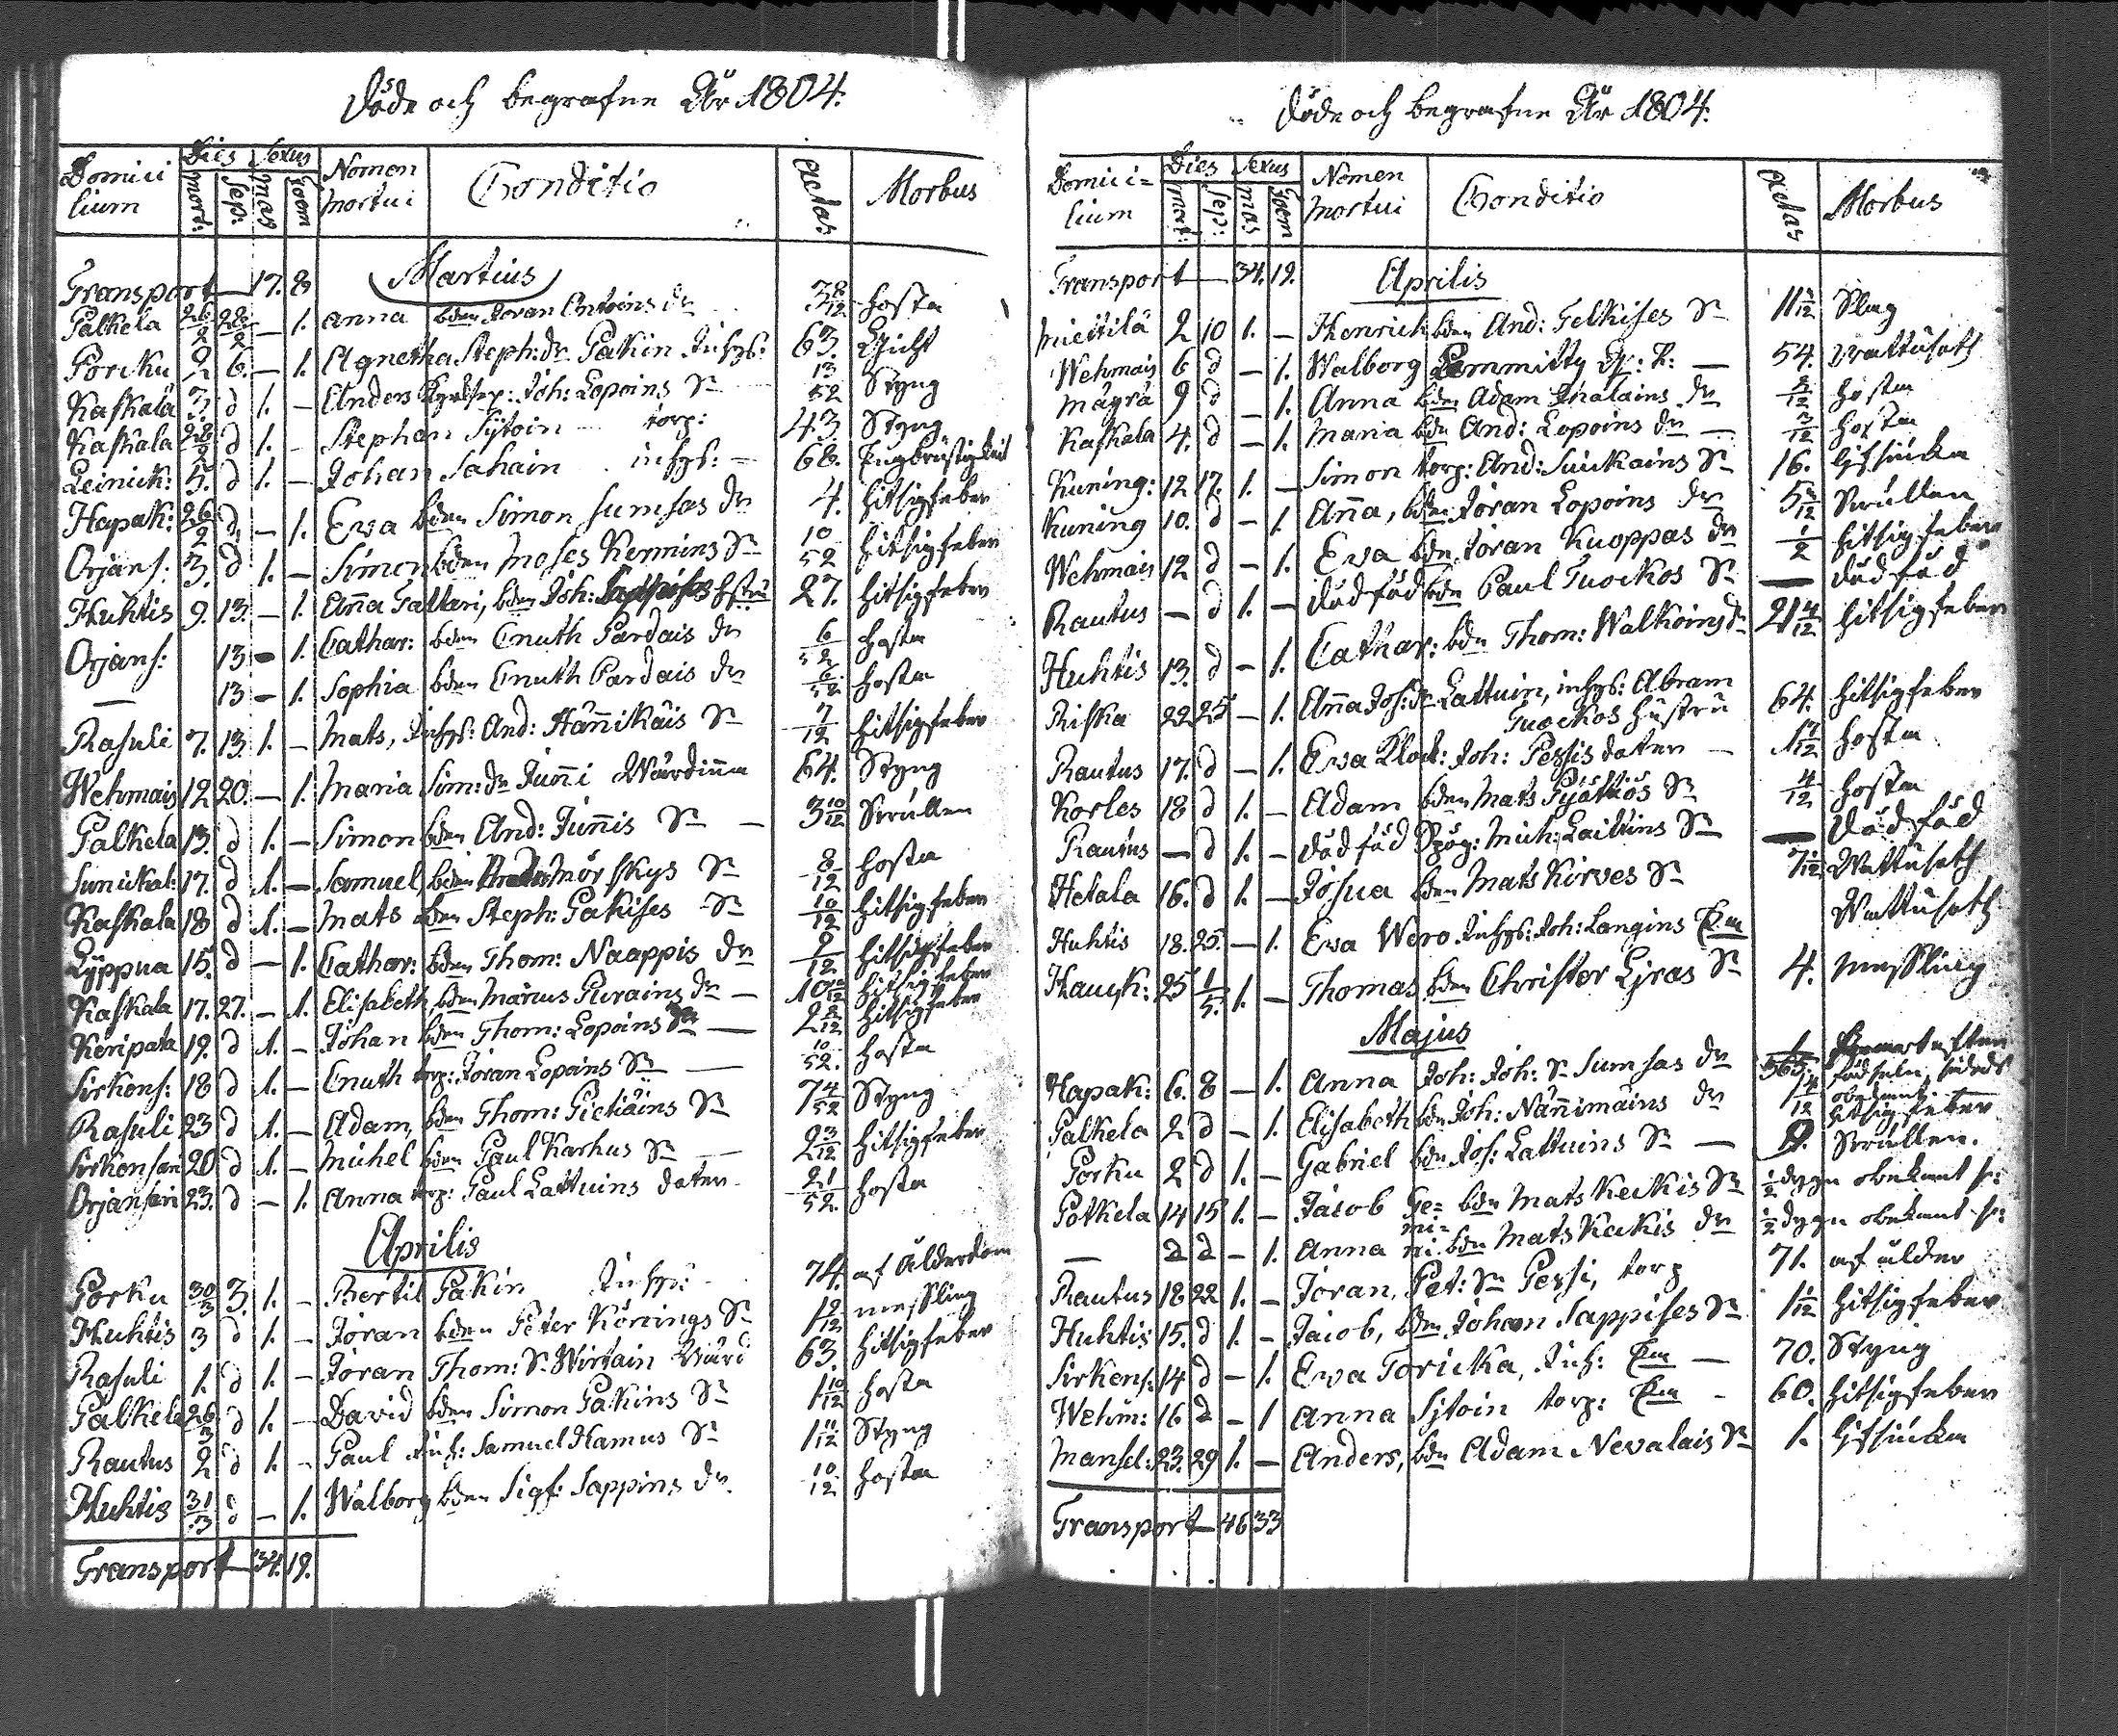 Döde och begrafne År 1804.
Domici lium Dies mort: Sep: Sexus mas foem Nomen mortui Conditio Aetas Morbus
Transport — 17. 8 Martius
Palkela 26/2 28/2 — 1. Anna bden Joran Ontoins dr 3 8/12 hosta
Porcku 2 6. — 1. Agnetha Steph: dr Pakin Inhys: 63. Gicht
Kaskala 3. d 1. — Anders Joh: Lopoins Sn 13/52 Styng
Kaskala 28/2 d 1. — Stephan Sÿtoin torp: 43 Styng
Leinick: 5. d 1. — Johan Sahain inhys: — 68. Tugbrüstigkeit
Hapak: 26/2 d. — 1. Ewa bden Simon Sumsas dr 4. hitsigfeber
Orjans: 3. d 1. — Simon bden Moses Kemmins Sn 10/52 hitsigfeber
Huhtis 9. 13. — 1. Anna Taltari, bden Joh: hstru 27. hitsigfeber
Orjans: 13 — 1. Cathar: bden Cnuth Pardais dr 6/52 hosta
— 13 — 1. Sophia bden Cnuth Pardais dr 6/52 hosta
Rasuli 7. 13. 1. — Mats, Inhys: And: Hännikäis Sn 7/12 hitsigfeber
Wehmais 12 20. — 1. Maria Sim: dr Junni Wärdinna 64. Styng
Palkela 13. d 1. — Simon bden And: Junnis Sn — 3 10/12 Strüllen
Sunickal: 17. d 1. — Samuel bden Mörskys Sn 8/12 hosta
Kaskala 18 d 1. — Mats bden Steph: Pakises Sn 10/12 hitsigfeber
Lÿppua 15. d — 1. Cathar: bden Thom: Naappis dr 9/12 hitsigfeber
Kaskala 17. 27. — 1. Elisabeth, bden Marcus Purains dr — 10 10/12 hitsigfeber
Keripata 19. d 1. — Johan bden Thom: Lopoins Sn — 2 8/12 hitsigfeber
Sirkens: 18 d 1. — Cnuth torp: Joran Lopoins Sn — 10/52. hosta
Rasuli 23 d 1. — Adam, bden Thom: Pietiäins Sn 7 4/52 Styng
Sirkensari 20 d 1. — Michel bden Paul Karhus Sn — 2 3/12 hitsigfeber
Orjansari 23. d — 1. Anna torp: Paul Lattuins doter 21/52. hosta
Aprilis
Porku 30/3 3. 1. — Bertil Pakin Inhys: 74. af ålderdom
Huhtis 3 d 1. — Joran bden Peter Könings Sn 1 2/12 messling
Rasuli 1. d 1. — Joran Thom: Sn Wirtain Wärd 63. hitsigfeber
Palkela 26/3 d 1. — David bden Simon Pakins Sn 1 10/12 hosta
Rautus 2 d 1. — Paul Inh: Samuel Hamus Sn 1 11/12 Styng
Huhtis 31/3 d — 1. Walborg bden Sigf: Sappins dr 10/12 hosta
Transport — 34. 19.
Döde och begrafne År 1804.
Domici= lium Dies mort: Sep: Sexus mas foem Nomen mortui Conditio Aetas Morbus
Transport — 34. 19. Aprilis
Miettilä 2 10 1. — Henrich bden And: Telkises Sn 11/12 Slag
Wehmais 6 d — 1. Walborg Pommitty — 54. Wattusoth
Mägrä 9 d — 1. Anna bden Adam Ihalains dr 8/12 hosta
Kaskala 4. d — 1. Maria bden And: Lopoins dr — 3/12 hosta
Kuning: 12 17. 1. — Simon torp: And: Suickains Sn 16. Lifsiücka
Kuning 10. d — 1. Anna, bden Joran Lopoins dr 5/12 Strüllen
Wehmais 12 d — 1. Ewa bden Joran Kuoppas dr 1/2 hitsigfeber
Rautus — d 1. — Dödföd bden Paul Tuockos Sn — Dödföd
Huhtis 13. d — 1. Cathar: bden Thom: Walkoins dr 21 4/12 hitsigfeber
Riska 22 25 — 1. Anna Joh: dr Lattuin, inhys: Abram Tuockos hustru 64. hitsigfeber
Rautus 17. d — 1. Ewa Klock: Joh: Pessis dater — 1 7/12 hosta
Korles 18 d 1. — Adam bden Mats Pÿätiös Sn 4/12 hosta
Rautus — d 1. — Dödföd Mich: Laitins Sn — Dödföd
Hetala 16. d 1. — Josua bden Mats Körves Sn 7/12 Wattusoth
Huhtis 18. 25. — 1. Ewa Wero Inhys: Joh: Langins Wattusoth
Hauck: 25 1/5. 1. — Thomas bden Christer Ljras Sn 4. messling
Majus
Hapak: 6. 8 — 1. Anna Joh: Joh: Sn Sumsas dr 1/365
Palkela 2 d — 1. Elisabeth bden Joh: Nännimäins dr 1 4/12 hitsigfeber
Porku 2 d 1. — Gabriel bden Joh: Lattuins Sn — 9. Strüllen.
Potkela 14 15 1. — Jacob Ge= bden Mats Keckis Sn 1/2 dygn obekant
— d d — 1. Anna mi= ni. bden Mats Keckis dr 1/2 dygn obekant
Rautus 18 22 1. — Joran, Pet: Sn Pessi, torp 71. af ålder
Huhtis 15. d 1. — Jacob, bden Johan Sappises Sn 1 1/12 hitsigfeber
Sirkens: 14 d — 1. Ewa Toricka, Inh: Em — 70. Styng
Wehm: 16 d — 1 Anna Sjtoin torp: Em — 60. hitsigfeber
Mansel: 23. 29 1. — Anders, bden Adam Nevalais Sn 1. Lifsiücka
Transport — 46 33